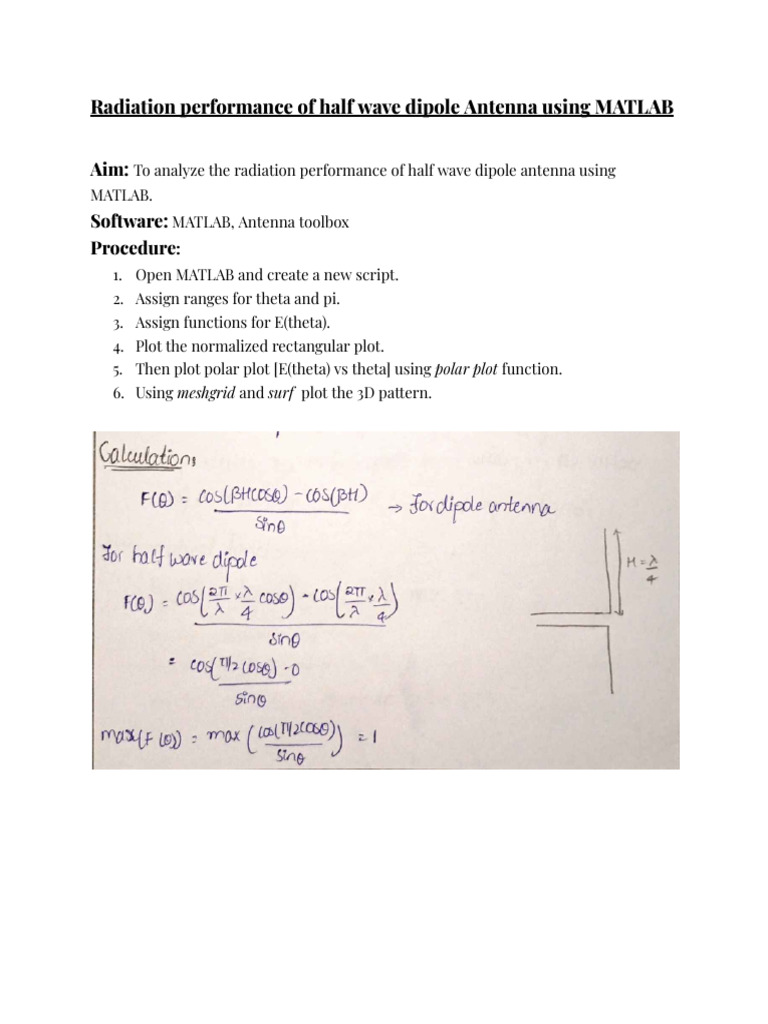 Radiation performance of half wave dipole Antenna using MATLAB
Aim: To analyze the radiation performance of half wave dipole antenna using
MATLAB.
Software: MATLAB, Antenna toolbox
Procedure:
1. Open MATLAB and create a new script.
2. Assign ranges for theta and pi.
3. Assign functions for E(theta).
4. Plot the normalized rectangular plot.
5. Then plot polar plot [E(theta) vs theta] using polar plot function.
6. Using meshgrid and surf plot the 3D pattern.
Calculation:
F(θ) = cos(βHcosθ) - cos(βH) / sinθ → for dipole antenna
For half wave dipole
H = λ/4
F(θ) = cos(2π/λ × λ/4 cosθ) - cos(2π/λ × λ/4) / sinθ
= cos(π/2 cosθ) - 0 / sinθ
max(F(θ)) = max(cos(π/2 cosθ) / sinθ) = 1